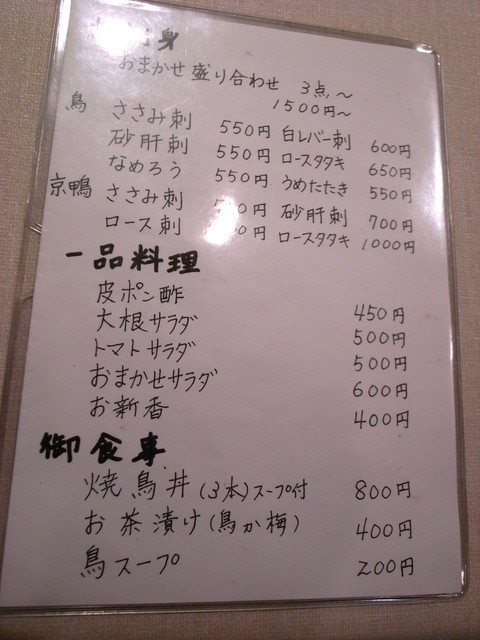 身
おまかせ盛り合わせ 3点～
1500円～
鳥 ささみ刺 550円 白レバー刺 600円
砂肝刺 550円 ロースタタキ 650円
なめろう 550円 うめたたき 550円
京鴨 ささみ刺 円 砂肝刺 700円
ロース刺 円 ロースタタキ 1000円
一品料理
皮ポン酢 450円
大根サラダ 500円
トマトサラダ 500円
おまかせサラダ 600円
お新香 400円
御食事
焼鳥丼(3本)スープ付 800円
お茶漬け(鳥か梅) 400円
鳥スープ 200円